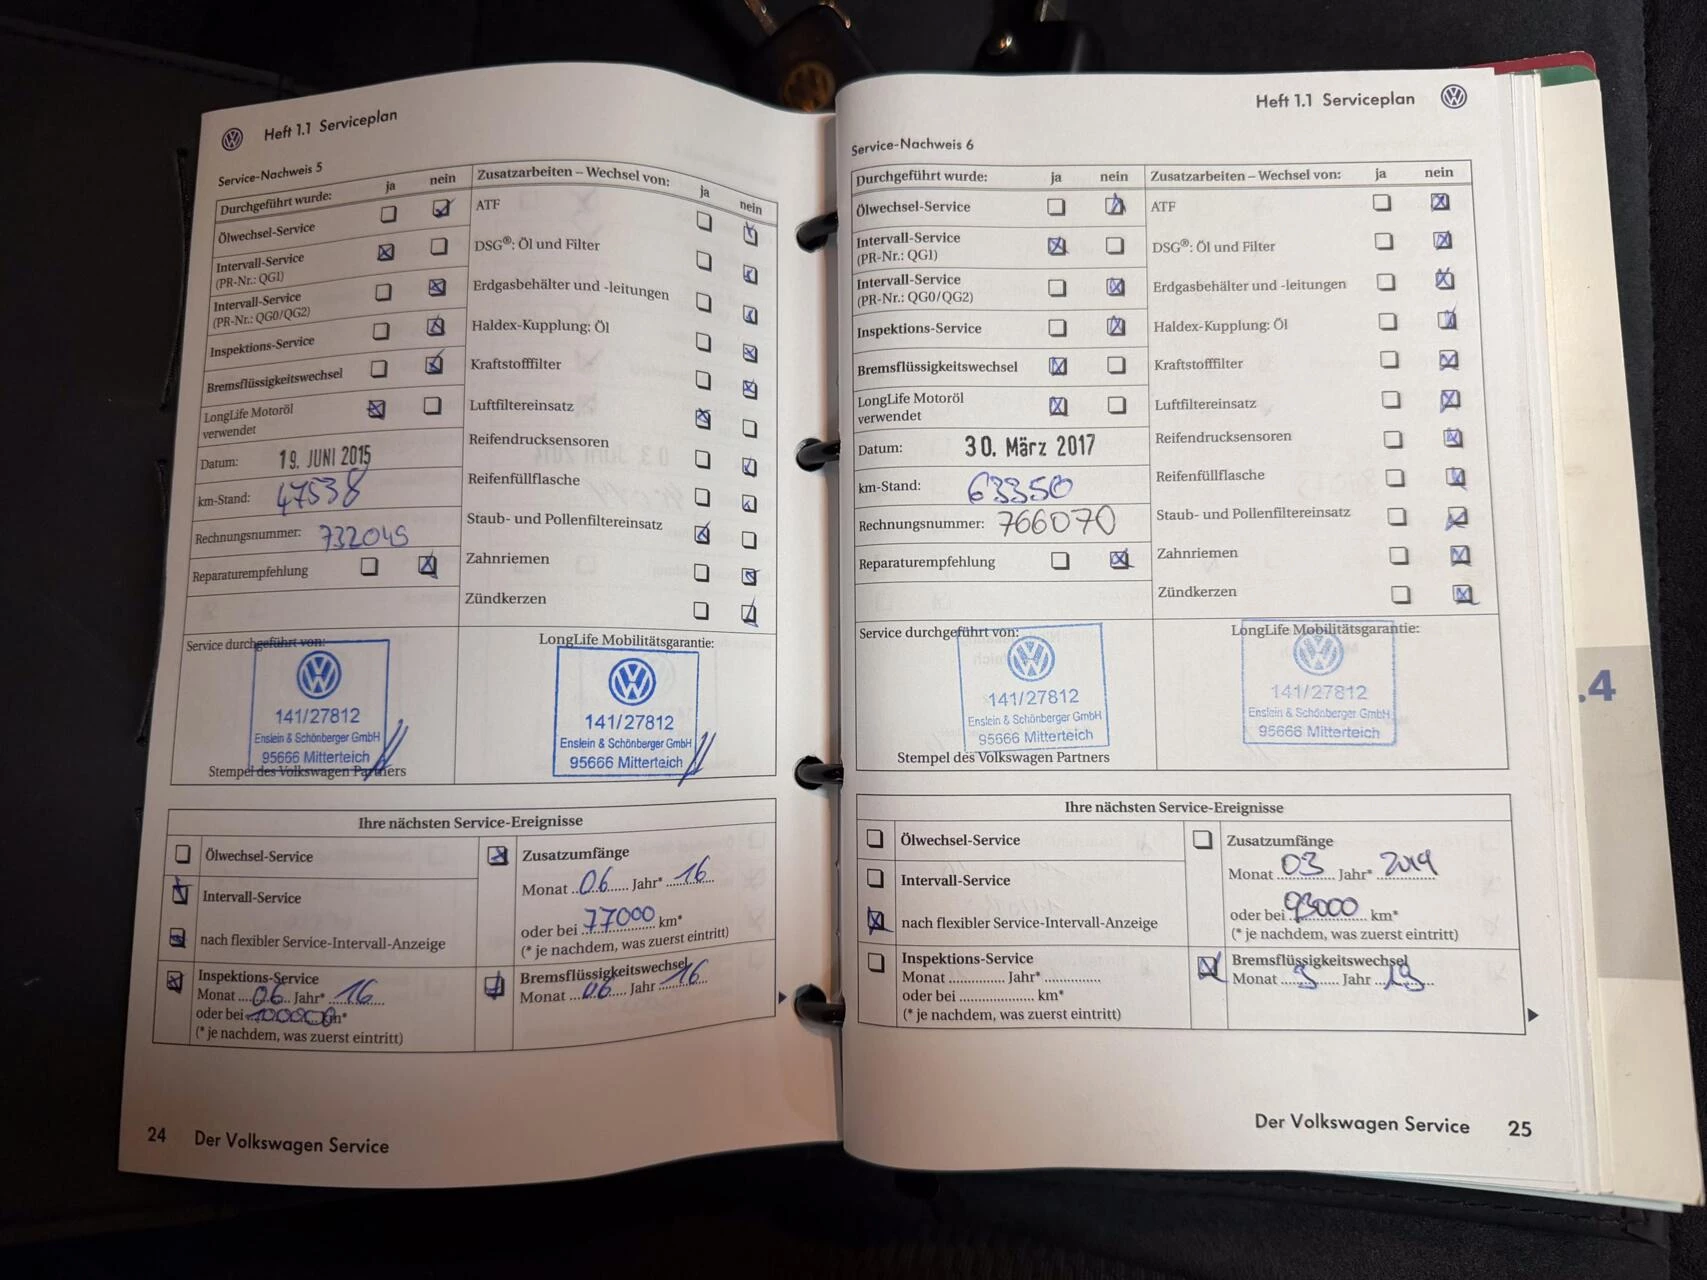 Heft 1.1 Serviceplan
Service-Nachweis 5
Durchgeführt wurde: ja nein
Ölwechsel-Service
Intervall-Service
(PR-Nr.: QG1)
Intervall-Service
(PR-Nr.: QG0/QG2)
Inspektions-Service
Bremsflüssigkeitswechsel
LongLife Motoröl
verwendet
Datum: 19. JUNI 2015
km-Stand: 47538
Rechnungsnummer: 732045
Reparaturempfehlung
Zusatzarbeiten – Wechsel von: ja nein
ATF
DSG®: Öl und Filter
Erdgasbehälter und -leitungen
Haldex-Kupplung: Öl
Kraftstofffilter
Luftfiltereinsatz
Reifendrucksensoren
Reifenfüllflasche
Staub- und Pollenfiltereinsatz
Zahnriemen
Zündkerzen
Service durchgeführt von:
141/27812
Enslein & Schönberger GmbH
95666 Mitterteich
Stempel des Volkswagen Partners
LongLife Mobilitätsgarantie:
141/27812
Enslein & Schönberger GmbH
95666 Mitterteich
Ihre nächsten Service-Ereignisse
Ölwechsel-Service
Intervall-Service
nach flexibler Service-Intervall-Anzeige
Inspektions-Service
Monat 06 Jahr* 16
oder bei 100000 km*
(* je nachdem, was zuerst eintritt)
Zusatzumfänge
Monat 06 Jahr* 16
oder bei 77000 km*
(* je nachdem, was zuerst eintritt)
Bremsflüssigkeitswechsel
Monat 06 Jahr 16
24 Der Volkswagen Service
Heft 1.1 Serviceplan
Service-Nachweis 6
Durchgeführt wurde: ja nein
Ölwechsel-Service
Intervall-Service
(PR-Nr.: QG1)
Intervall-Service
(PR-Nr.: QG0/QG2)
Inspektions-Service
Bremsflüssigkeitswechsel
LongLife Motoröl
verwendet
Datum: 30. März 2017
km-Stand: 63350
Rechnungsnummer: 766070
Reparaturempfehlung
Zusatzarbeiten – Wechsel von: ja nein
ATF
DSG®: Öl und Filter
Erdgasbehälter und -leitungen
Haldex-Kupplung: Öl
Kraftstofffilter
Luftfiltereinsatz
Reifendrucksensoren
Reifenfüllflasche
Staub- und Pollenfiltereinsatz
Zahnriemen
Zündkerzen
Service durchgeführt von:
141/27812
Enslein & Schönberger GmbH
95666 Mitterteich
Stempel des Volkswagen Partners
LongLife Mobilitätsgarantie:
141/27812
Enslein & Schönberger GmbH
95666 Mitterteich
Ihre nächsten Service-Ereignisse
Ölwechsel-Service
Intervall-Service
nach flexibler Service-Intervall-Anzeige
Inspektions-Service
Monat ............... Jahr* ...............
oder bei .................... km*
(* je nachdem, was zuerst eintritt)
Zusatzumfänge
Monat 03 Jahr* 2019
oder bei 93000 km*
(* je nachdem, was zuerst eintritt)
Bremsflüssigkeitswechsel
Monat 3 Jahr 19
Der Volkswagen Service 25
.4